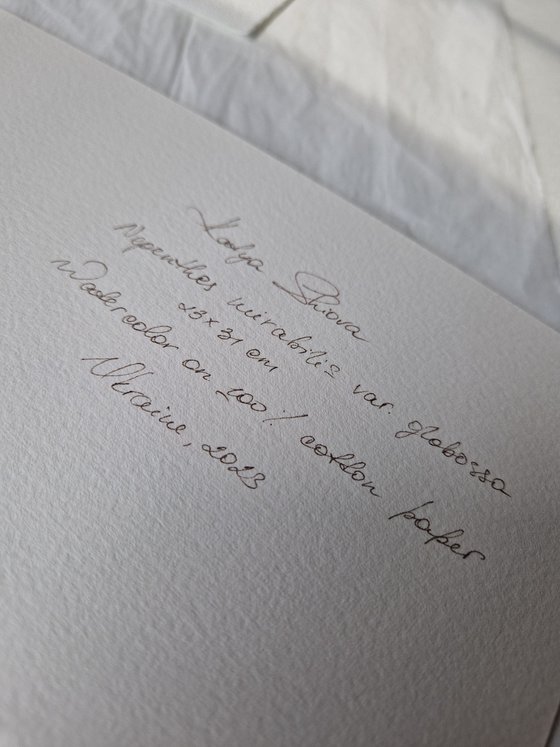 Katya Shiova
Nepenthes mirabilis var. globossa
23x31 cm
Watercolor on 100% cotton paper
Ukraine, 2023